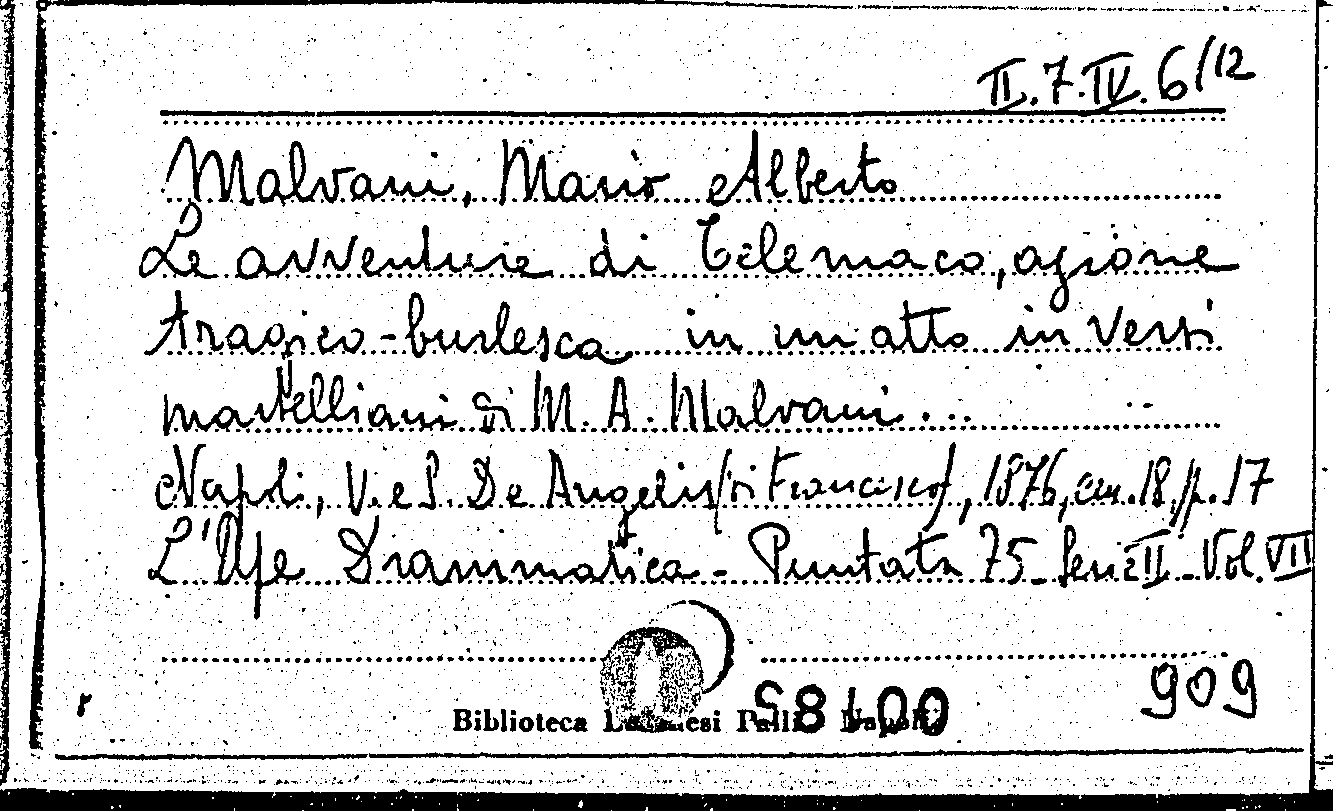 II.7.IV.6/12
Malvani, Mario Alberto
Le avventure di Telemaco, azione
tragico-burlesca in un atto in versi
martelliani di M. A. Malvani...
Napoli, V. e S. De Angelis (di Francesco), 1876, cm. 18, p. 17
L'Ape Drammatica - Puntata 75 - Serie II - Vol. VII
909
Biblioteca Napoli